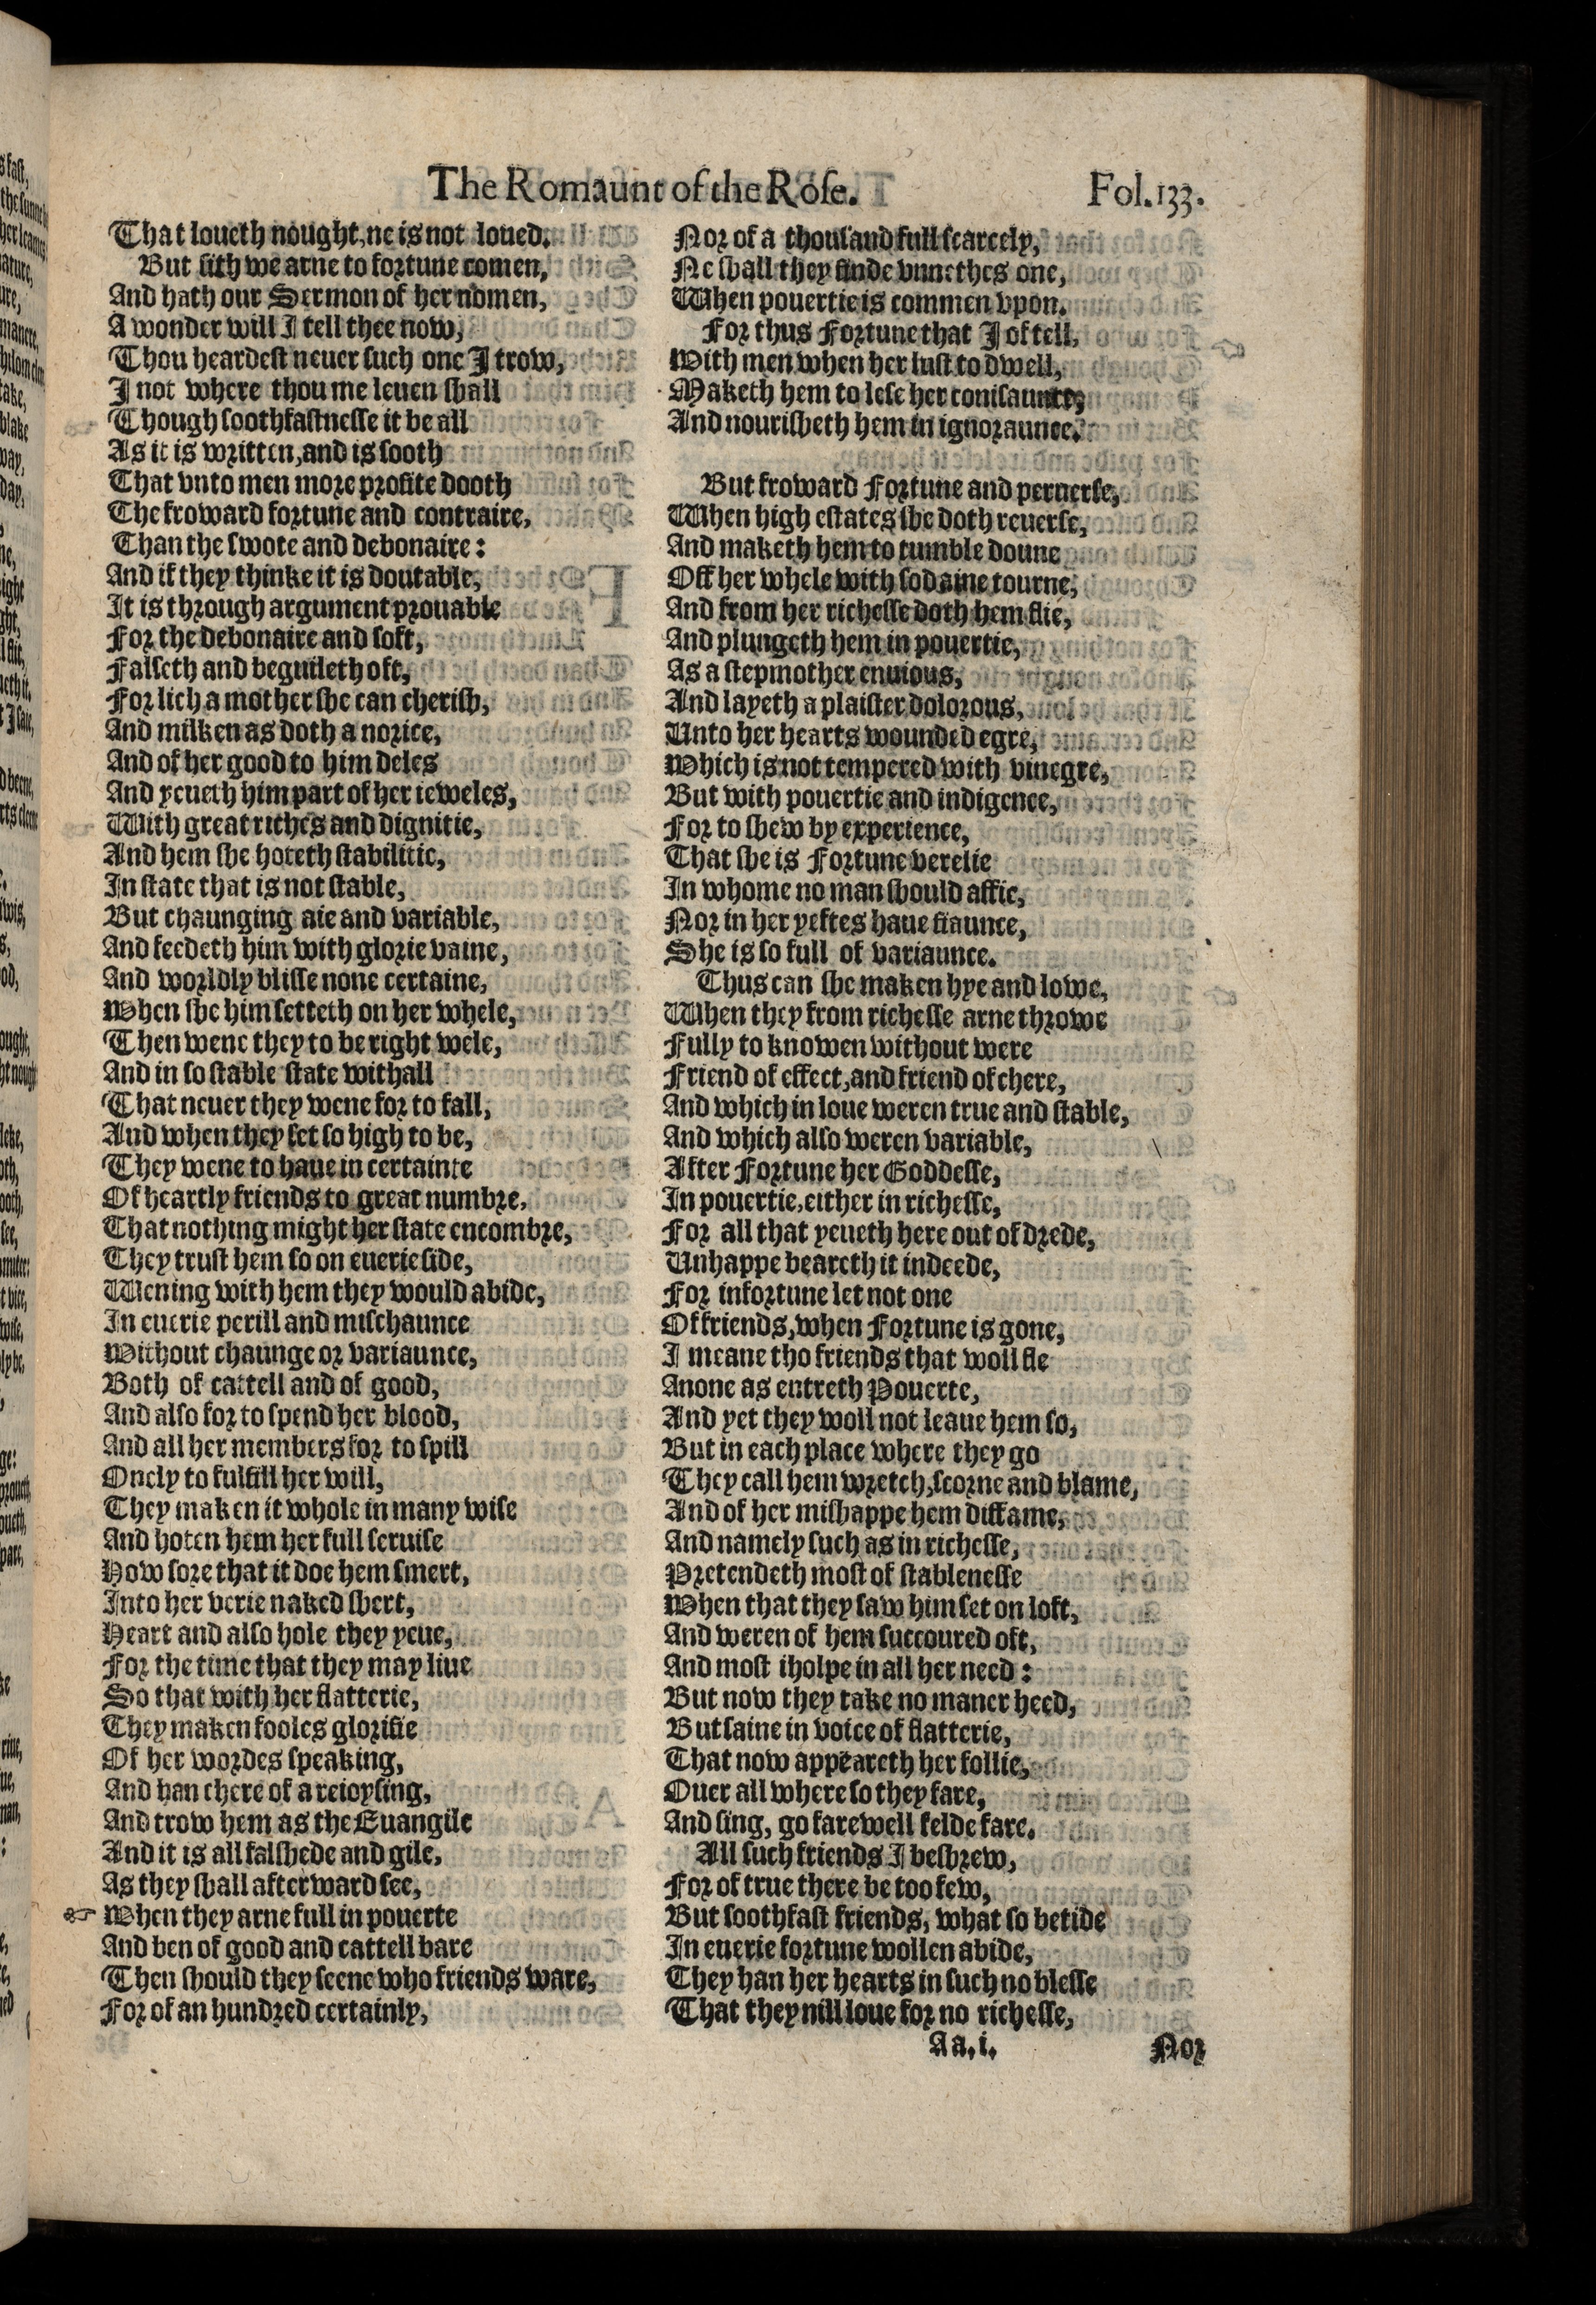 The Romaunt of the Rose. Fol.133.
That loueth nought, ne is not loued.
But sith we arne to fortune comen,
And hath our Sermon of her nomen,
A wonder will I tell thee now,
Thou heardest neuer such one I trow,
I not where thou me leuen shall
Though soothfastnesse it be all
As it is written, and is sooth
That vnto men more profite dooth
The froward fortune and contraire,
Than the swote and debonaire:
And if they thinke it is doutable,
It is through argument prouable
For the debonaire and soft,
Falseth and beguileth oft,
For lich a mother she can cherish,
And milken as doth a norice,
And of her good to him deles
And yeueth him part of her ieweles,
With great riches and dignitie,
And hem she hoteth stabilitie,
In state that is not stable,
But chaunging aie and variable,
And feedeth him with glorie vaine,
And worldly blisse none certaine,
When she him setteth on her whele,
Then wene they to be right wele,
And in so stable state withall
That neuer they wene for to fall,
And when they set so high to be,
They wene to haue in certainte
Of heartly friends to great numbre,
That nothing might her state encombre,
They trust hem so on euerie side,
Wening with hem they would abide,
In euerie perill and mischaunce
Without chaunge or variaunce,
Both of cattell and of good,
And also for to spend her blood,
And all her members for to spill
Onely to fulfill her will,
They maken it whole in many wise
And hoten hem her full seruise
How sore that it doe hem smert,
Into her verie naked shert,
Heart and also hole they yeue,
For the time that they may liue
So that with her flatterie,
They maken fooles glorifie
Of her wordes speaking,
And han there of a reioysing,
And trow hem as the Euangile
And it is all falshede and gile,
As they shall afterward see,
☞ When they arne full in pouerte
And ben of good and cattell bare
Then should they seene who friends ware,
For of an hundred certainly,
Nor of a thousand full scarcely,
Ne shall they finde vnnethes one,
When pouertie is commen vpon.
For thus Fortune that I of tell,
With men when her lust to dwell,
Maketh hem to lese her conisaunce,
And nourisheth hem in ignoraunce.
But froward Fortune and peruerse,
When high estates she doth reuerse,
And maketh hem to tumble doune
Off her whele with sodaine tourne,
And from her richesse doth hem flie,
And plungeth hem in pouertie,
As a stepmother enuious,
And layeth a plaister dolorous,
Unto her hearts wounded egre,
Which is not tempered with vinegre,
But with pouertie and indigence,
For to shew by experience,
That she is Fortune verelie
In whome no man should affie,
Nor in her yeftes haue fiaunce,
She is so full of variaunce.
Thus can she maken hye and lowe,
When they from richesse arne throwe
Fully to knowen without were
Friend of effect, and friend of chere,
And which in loue weren true and stable,
And which also weren variable,
After Fortune her Goddesse,
In pouertie, either in richesse,
For all that yeueth here out of drede,
Unhappe beareth it indeede,
For infortune let not one
Of friends, when Fortune is gone,
I meane tho friends that woll fle
Anone as entreth Pouerte,
And yet they woll not leaue hem so,
But in each place where they go
They call hem wretch, scorne and blame,
And of her mishappe hem diffame,
And namely such as in richesse,
Pretendeth most of stablenesse
When that they saw him set on loft,
And weren of hem succoured oft,
And most iholpe in all her need:
But now they take no maner heed,
But saine in voice of flatterie,
That now appeareth her follie,
Ouer all where so they fare,
And sing, go farewell felde fare.
All such friends I beshrew,
For of true there be too few,
But soothfast friends, what so betide
In euerie fortune wollen abide,
They han her hearts in such noblesse
That they nill loue for no richesse,
Aa.i. Nor